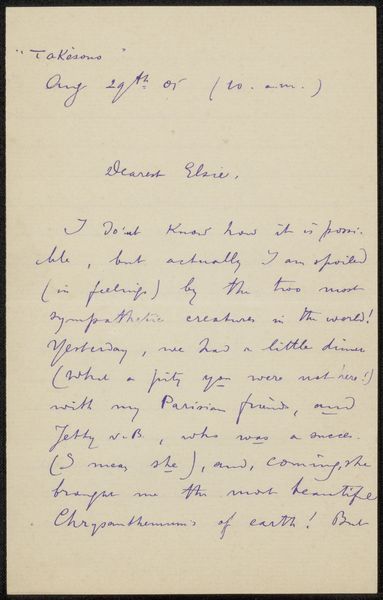 "Takesono"
Aug 29th 05 (10. a.m.)
Dearest Elsie,
I do'nt know how it is possi-
ble, but actually I am spoiled
(in feelings) by the two most
sympathetic creatures in the world!
Yesterday, we had a little dinner
(What a pity you were not here!)
with my Parisian friend, and
Jetty v. B., who was a succes.
(I mean she), and, coming, she
brought me the most beautiful
Chrysanthemums of earth! But